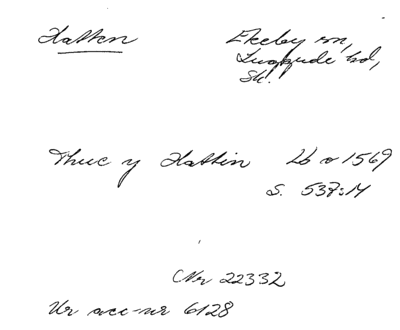 Hatten
Ekeby sn,
Luggude hd,
Sk.
Thuc y Hattin Lb o 1569
S. 538:14
(Nr 22332
Ur acc-nr 6128